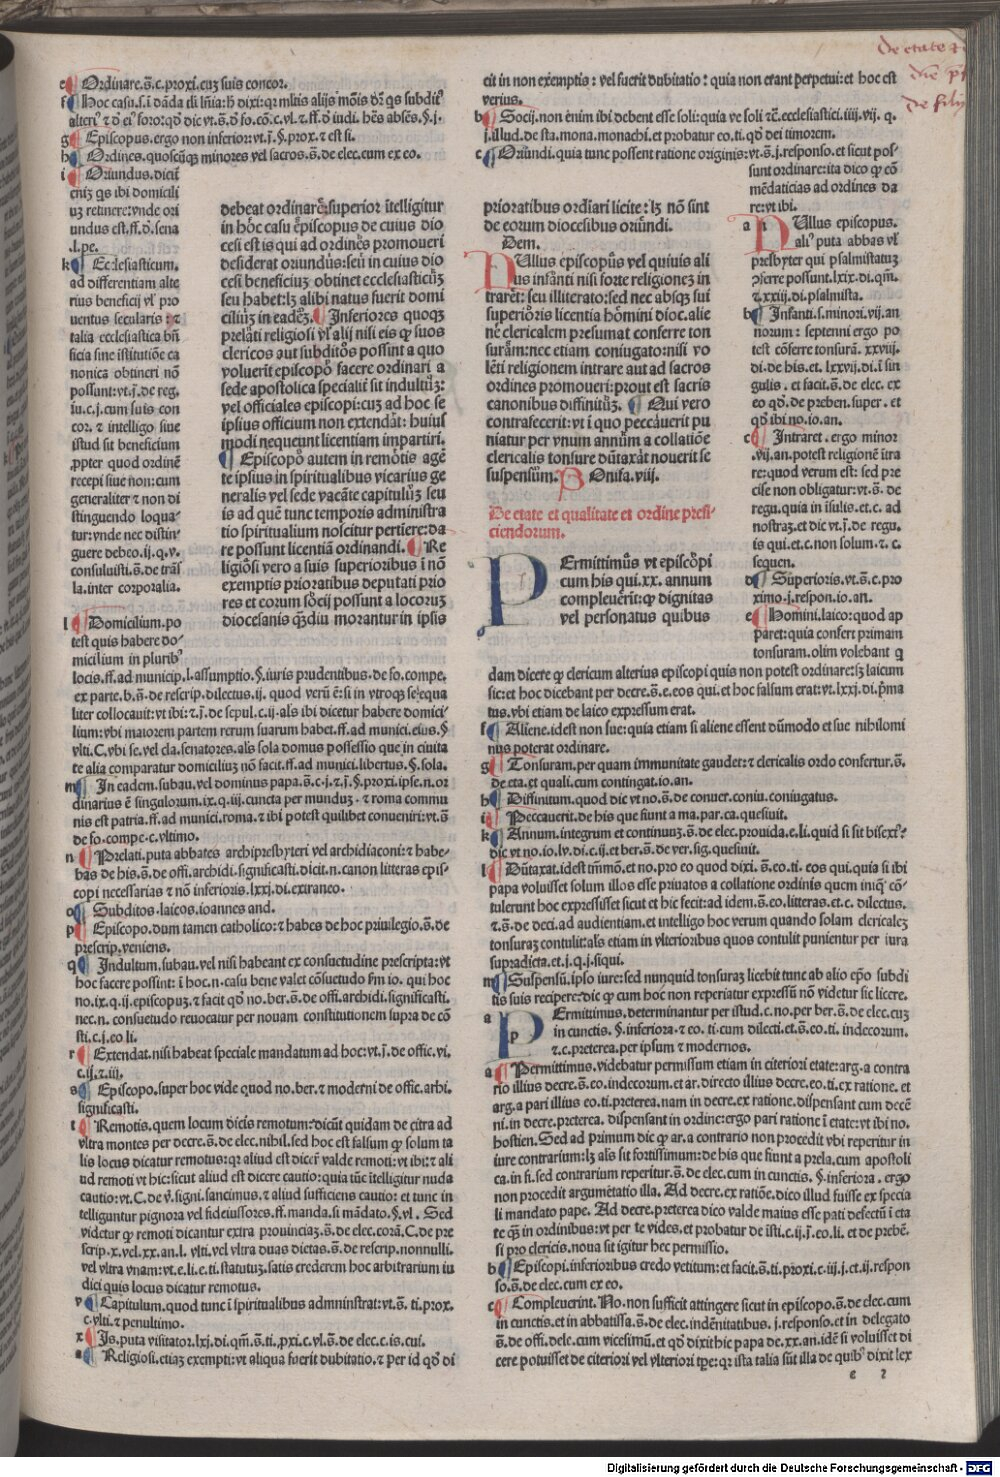 De etate et
die
de filijs
e Ordinare.s̄.c.proxi.cuʒ suis concor.
f Hoc casu.s.i dāda eli lr̄ia:
g Episcopus.ergo non inferior:vt.j.§.prox.⁊ est si.
h Ordines.quoscūqʒ minores vel sacros.s̄.de elec.cum ex eo.
i Oriundus.dicit̄
eniʒ qs ibi domicili
uʒ retinere:vnde ori
undus est.ff.ð.sena
.l.pe.
k Ecclesiasticum.
ad differentiam alte
rius beneficij vl' pro
uentus secularis:⁊
talia ecclesiastica bn̄
ficia sine īstitutiōe ca
nonica obtineri nō
possunt:vt.j.de reg.
iu.c.j.cum suis con
cor.⁊ intelligo siue
istud sit beneficium
.ppter quod ordinē
recepi siue non:cum
generaliter ⁊ non di
stinguendo loqua-
tur:vnde nec distin-
guere debeo.ij.q.v.
consuluisti.s̄.de trās̄
la.inter corporalia.
l Domicilium.po
test quis habere do
micilium in plurib⁹
locis.ff.ad municip.l.assumptio.§.iuris prudentibus.de fo.compe.
ex parte.b.s̄.de rescrip.dilectus.ij. quod verū ē:si in vtroqʒ se equa
liter collocauit:vt ibi:⁊.j.de sepul.c.ij.als ibi dicetur habere domici-
lium:vbi maiorem partem rerum suarum habet.ff.ad munici.eius.§
vlti.C.vbi se.vel cla.senatores.als sola domus possessio que in ciuita
te alia comparatur domiciliuʒ nō facit.ff.ad munici.libertus.§.sola.
m In eadem.subau.vel dominus papa.s̄.c.j.⁊.j.§.proxi.ipse.n.or
dinarius ē singulorum.ix.q.iij.cuncta per munduʒ.⁊ roma commu
nis est patria.ff.ad munici.roma.⁊ ibi potest quilibet conueniri:vt.s̄
de fo.compe.c.vltimo.
n Prelati.puta abbates archipresbyteri vel archidiaconi:⁊ habe-
bas de his.s̄.de offi.archidi.significasti.dicit.n.canon litteras epis-
copi necessarias ⁊ nō inferioris.lxxj.di.extraneo.
o Subditos.laicos.ioannes and.
p Episcopo.dum tamen catholico:⁊ habes de hoc priuilegio.s̄.de
prescrip.veniens.
q Indultum.subau.vel nisi habeant ex consuetudine prescripta:vt
hoc facere possint: ī hoc.n.casu bene valet cōsuetudo fm io. qui hoc
no.ix.q.ij.episcopuʒ.⁊ facit qð no.ber.s̄.de offi.archidi.significasti.
nec.n. consuetudo reuocatur per nouam constitutionem supra de cō
sti.c.j.eo li.
r Extendat.nisi habeat speciale mandatum ad hoc:vt.j.de offic.vi.
c.ij.⁊.iij.
s Episcopo.super hoc vide quod no.ber.⁊ moderni de offic.archi.
significasti.
t Remotis.quem locum dicūs remotum:dicūt quidam de citra ad
vltra montes per decre.s̄.de elec.nihil.sed hoc est falsum qꝫ solum ta
lis locus dicatur remotus:qr aliud est dicer̄ valde remoti:vt ibi:⁊ ali
ud remoti vt hic:sicut aliud est dicere cautio:quia tūc ītelligitur nuda
cautio:vt.C.de v̄.signi.sancimus.⁊ aliud sufficiens cautio: et tunc in
telliguntur pignora vel fideiussores.ff.manda.si mādato.§.vl. Sed
videtur qꝫ remoti dicantur extra prouinciaʒ.s̄.de elec.corā.C.de pre
scrip.x.vel.xx.an.l. vlti.vel vltra duas dictas.s̄.de rescrip.nonnulli.
vel vltra vnam:vt.e.li.e.ti.statutuʒ.satis crederem hoc arbitrarium iu
dici quis locus dicatur remotus.
v Capitulum.quod tunc ī spiritualibus adminnistrat:vt.s̄. ti.prox.
c.vlti.⁊ penultimo.
x Js.puta visitator.lxj.di.qm̄.s̄.ti.pxi.c.vl.s̄.de elec.c.is.cui.
a Religiosi.etiaʒ exempti:vt aliqua fuerit dubitatio.⁊ per id qð di
debeat ordinare:superior ītelligitur
in hoc casu episcopus de cuius dio
cesi est is qui ad ordines promoueri
desiderat oriundus:seu in cuius dio
cesi beneficiuʒ obtinet ecclesiasticuʒ
seu habet:lʒ alibi natus fuerit domi
ciliuʒ in eadeʒ. Inferiores quoqʒ
prelati religiosi vl' alij nisi eis qꝫ suos
clericos aut subditos possint a quo
voluerit episcopo facere ordinari a
sede apostolica specialit̄ sit indultuʒ:
vel officiales episcopi:cuʒ ad hoc se
ipsius officium non extendat: huius
modi nequeunt licentiam impartiri.
Episcopo autem in remotis agē
te ipsius in spiritualibus vicarius ge
neralis vel sede vacāte capituluʒ seu
is ad quē tunc temporis administra
tio spiritualium noscitur pertiere:da
re possunt licentiā ordinandi. Re
ligiosi vero a suis superioribus ī nō
exemptis prioratibus deputati prio
res et eorum socij possunt a locoruʒ
diocesanis qʒdiu morantur in ipsis
cit in non exemptis: vel fuerit dubitatio: quia non erant perpetui:et hoc est
verius.
b Socij.non enim ibi debent esse soli:quia ve soli ⁊c̄.ecclesiastici.iiij.vij. q.
j.illud.de sta.mona.monachi.et probatur eo.ti.qð dei timorem.
c Oriundi.quia tunc possent ratione originis:vt.s̄.j.responso.et sicut pos-
sunt ordinare:ita dico qꝫ cō
mēdaticias ad ordines da
re:vt ibi.
prioratibus ordīari licite: lʒ nō sint
de eorum diocesibus oriūndi.
Jdem.
Nullus episcopus vel quiuis ali
us infanti nisi forte religioneʒ in
traret:seu illiterato:sed nec absqʒ sui
superioris licentia homini dioc.alie
ne clericalem presumat conferre ton
suram:nec etiam coniugato:nisi vo
lēti religionem intrare aut ad sacros
ordines promoueri:prout est sacris
canonibus diffinituʒ. Qui vero
contrafecerit:vt ī quo peccauerit pu
niatur per vnum annum a collatiōe
clericalis tonsure dūtaxat nouerit se
suspensum. Bonifa.viij.
De etate et qualitate et ordine prefi-
ciendorum.
Permittimus vt episcopi
cum his qui.xx. annum
compleuerint:qꝫ dignitas
vel personatus quibus
a Nullus episcopus.
ali⁹ puta abbas vl'
presbyter qui psalmistatuʒ
oferre possunt.lxix.di.qm̄.
⁊.xxiij.di.psalmista.
b Infanti.s.minori.vij.an
norum: septenni ergo po
test cōferre tonsurā.xxviij.
di.de his.et.lxxvij.di.ī sin
gulis. et facit.s̄.de elec. ex
eo qð.de preben.super. et
qð ibi no.io.an.
c Intraret. ergo minor
.vij.an.potest religionē ītra
re:quod verum est: sed pre
cise non obligatur:vt.s̄. de
regu.quia in isulis.et.c. ad
nostraʒ.et dic vt.j.de regu.
is qui.et.c.non solum.⁊.c.
sequen.
d Superioris.vt.s̄.c.pro
ximo.j.respon.io.an.
e Homini.laico:quod ap
paret:quia confert primam
tonsuram.olim volebant q
dam dicere qꝫ clericum alterius episcopi quis non potest ordinare:lʒ laicum
sic:et hoc dicebant per decre.s̄.e.eos qui.et hoc falsum erat:vt.lxxj.di.p̄ma
tus.vbi etiam de laico expressum erat.
f Aliene.idest non sue:quia etiam si aliene essent dūmodo et sue nihilomi
nus poterat ordinare.
g Tonsuram.per quam immunitate gaudet:⁊ clericalis ordo confertur.s̄.
de eta.et quali.cum contingat.io.an.
h Diffinitum.quod dic vt no.s̄.de conuer.coniu.coniugatus.
i Peccauerit.de his que fiunt a ma.par.ca.quesiuit.
k Annum.integrum et continuuʒ.s̄.de elec.prouida.e.li.quid si sit bisext⁹:
dic vt no.io.lv.di.c.ij.et ber.s̄.de ver.sig.quesiuit.
l Dūtaxat.idest tm̄mō.et no.pro eo quod dixi.s̄.eo.ti.eos qui.quia si ibi
papa voluisset solum illos esse priuatos a collatione ordinis quem iniq̄ cō-
tulerunt hoc expressisset sicut et hic fecit:ad idem.s̄.eo.litteras.et.c. dilectus.
⁊.s̄.de deci.ad audientiam.et intelligo hoc verum quando solam clericaleʒ
tonsuraʒ contulit:als etiam in vlterioribus quos contulit punientur per iura
supradicta.et.j.q.j.siqui.
m Suspensū.ipso iure:sed nunquid tonsuraʒ licebit tunc ab alio ep̄o subdi
tis suis recipere:dic qꝫ cum hoc non reperiatur expressū nō videtur sic licere.
a Permittimus.determinantur per istud.c.no.per ber.s̄.de elec.cuʒ
in cunctis. §.inferiora.⁊ eo.ti.cum dilecti.et.s̄.eo.ti. indecorum.
⁊.c.preterea.per ipsum ⁊ modernos.
a Permittimus.videbatur permissum etiam in citeriori etate:arg.a contra
rio illius decre.s̄.eo.indecorum.et ar.directo illius decre.eo.ti.ex ratione. et
arg.a pari illius eo.ti.preterea.nam in decre.ex ratione.dispensant cum decē
ni.in decre.preterea. dispensant in ordine:ergo pari ratione ī etate:vt ibi no.
hostien. Sed ad primum dic qꝫ ar.a contrario non procedit vbi reperitur in
iure contrarium:lʒ als sit fortissimum:de his que fiunt a prela.cum apostoli
ca.in fi.sed contrarium reperitur.s̄.de elec.cum in cunctis. §.inferiora.ergo
non procedit argumētatio illa. Ad decre.ex ratiōe.dico illud fuisse ex specia
li mandato pape. Ad decre.preterea dico valde maius esse pati defectū ī eta
te q̄ʒ in ordinibus:vt per te vides.et probatur de īsti.c.ij.j.eo.li. et de prebē.
si pro clericis.noua sit igitur hec permissio.
b Episcopi.inferioribus credo vetitum:et facit.s̄.ti.proxi.c.iij.j.et.ij.respon
so.s̄.de elec.cum ex eo.
c Compleuerint.No.non sufficit attingere sicut in episcopo.s̄.de elec.cum
in cunctis.et in abbatissa.s̄.de elec.indēnitatibus.j.responso.et in delegato
s̄.de offi.dele.cum vicesimū.et qð dixit hic papa de.xx.an.idē si voluisset di
cere potuisset de citeriori vel vlteriori tp̄e:qr ista talia sūt illa de quib⁹ dixit lex
e 2
Digitalisierung gefördert durch die Deutsche Forschungsgemeinschaft - DFG